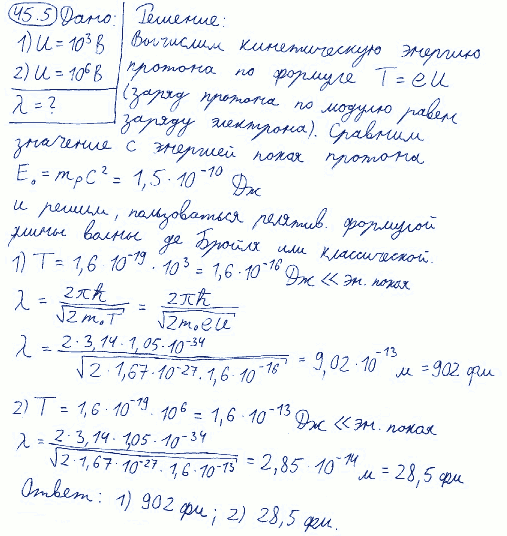 45.5 Дано: Решение:
1) U = 10³ В Вычислим кинетическую энергию
2) U = 10⁶ В протона по формуле T = eU
λ = ? (заряд протона по модулю равен
заряду электрона). Сравним
значение с энергией покоя протона
E₀ = mₚc² = 1,5·10⁻¹⁰ Дж
и решим, пользоваться релятив. формулой
длины волны де Бройля или классической.
1) T = 1,6·10⁻¹⁹·10³ = 1,6·10⁻¹⁶ Дж ≪ эн. покоя
λ = 2πħ/√(2m₀T) = 2πħ/√(2m₀eU)
λ = 2·3,14·1,05·10⁻³⁴/√(2·1,67·10⁻²⁷·1,6·10⁻¹⁶) = 9,02·10⁻¹³ м = 902 фм
2) T = 1,6·10⁻¹⁹·10⁶ = 1,6·10⁻¹³ Дж ≪ эн. покоя
λ = 2·3,14·1,05·10⁻³⁴/√(2·1,67·10⁻²⁷·1,6·10⁻¹³) = 2,85·10⁻¹⁴ м = 28,5 фм
Ответ: 1) 902 фм; 2) 28,5 фм.